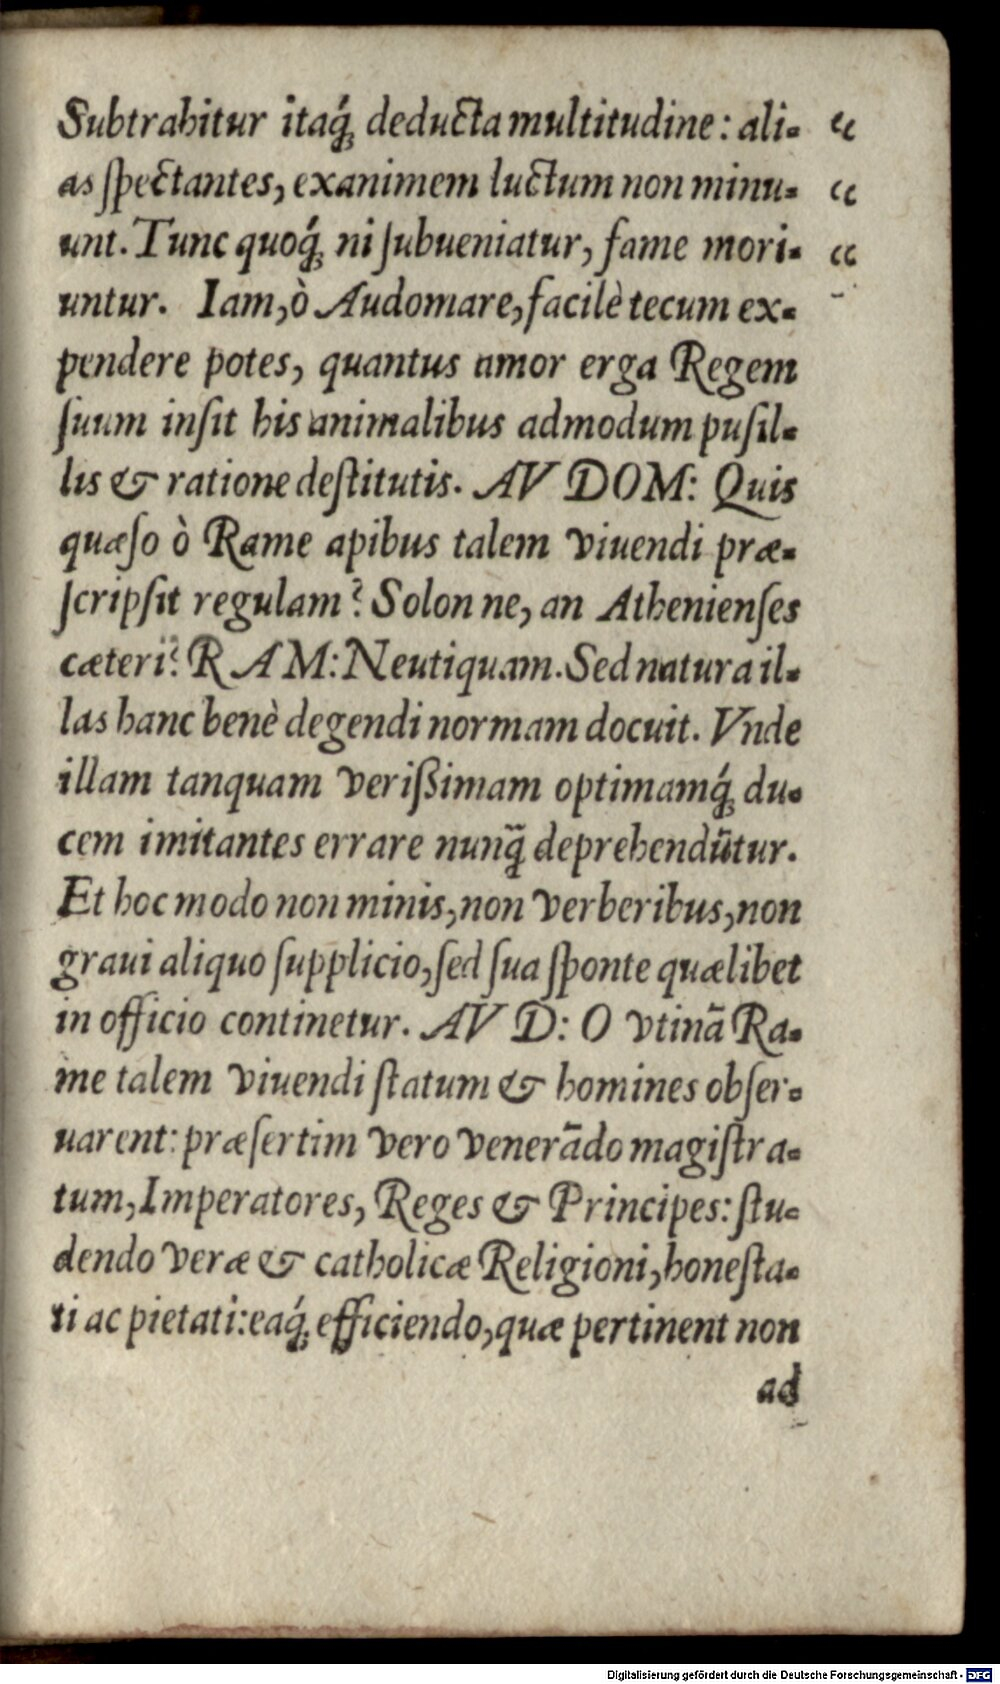 Subtrahitur itaq́; deducta multitudine: ali- “
as ſpectantes, exanimem luctum non minu- “
unt. Tunc quoq́; ni ſubueniatur, fame mori- “
untur. Iam, ò Audomare, facilè tecum ex-
pendere potes, quantus amor erga Regem
ſuum inſit his animalibus admodum puſil-
lis & ratione deſtitutis. AVDOM: Quis
quæſo ò Rame apibus talem viuendi præ-
ſcripſit regulam? Solon ne, an Athenienſes
cæteri? RAM: Neutiquam. Sed natura il-
las hanc benè degendi normam docuit. Vnde
illam tanquam verißimam optimamq́; du-
cem imitantes errare nunq̃ deprehendũtur.
Et hoc modo non minis, non verberibus, non
graui aliquo ſupplicio, ſed ſua ſponte quælibet
in officio continetur. AVD: O vtinã Ra-
me talem viuendi ſtatum & homines obſer-
uarent: præſertim vero venerãdo magiſtra-
tum, Imperatores, Reges & Principes: ſtu-
dendo veræ & catholicæ Religioni, honeſta-
ti ac pietati: eaq́; efficiendo, quæ pertinent non
ad
Digitalisierung gefördert durch die Deutsche Forschungsgemeinschaft - DFG